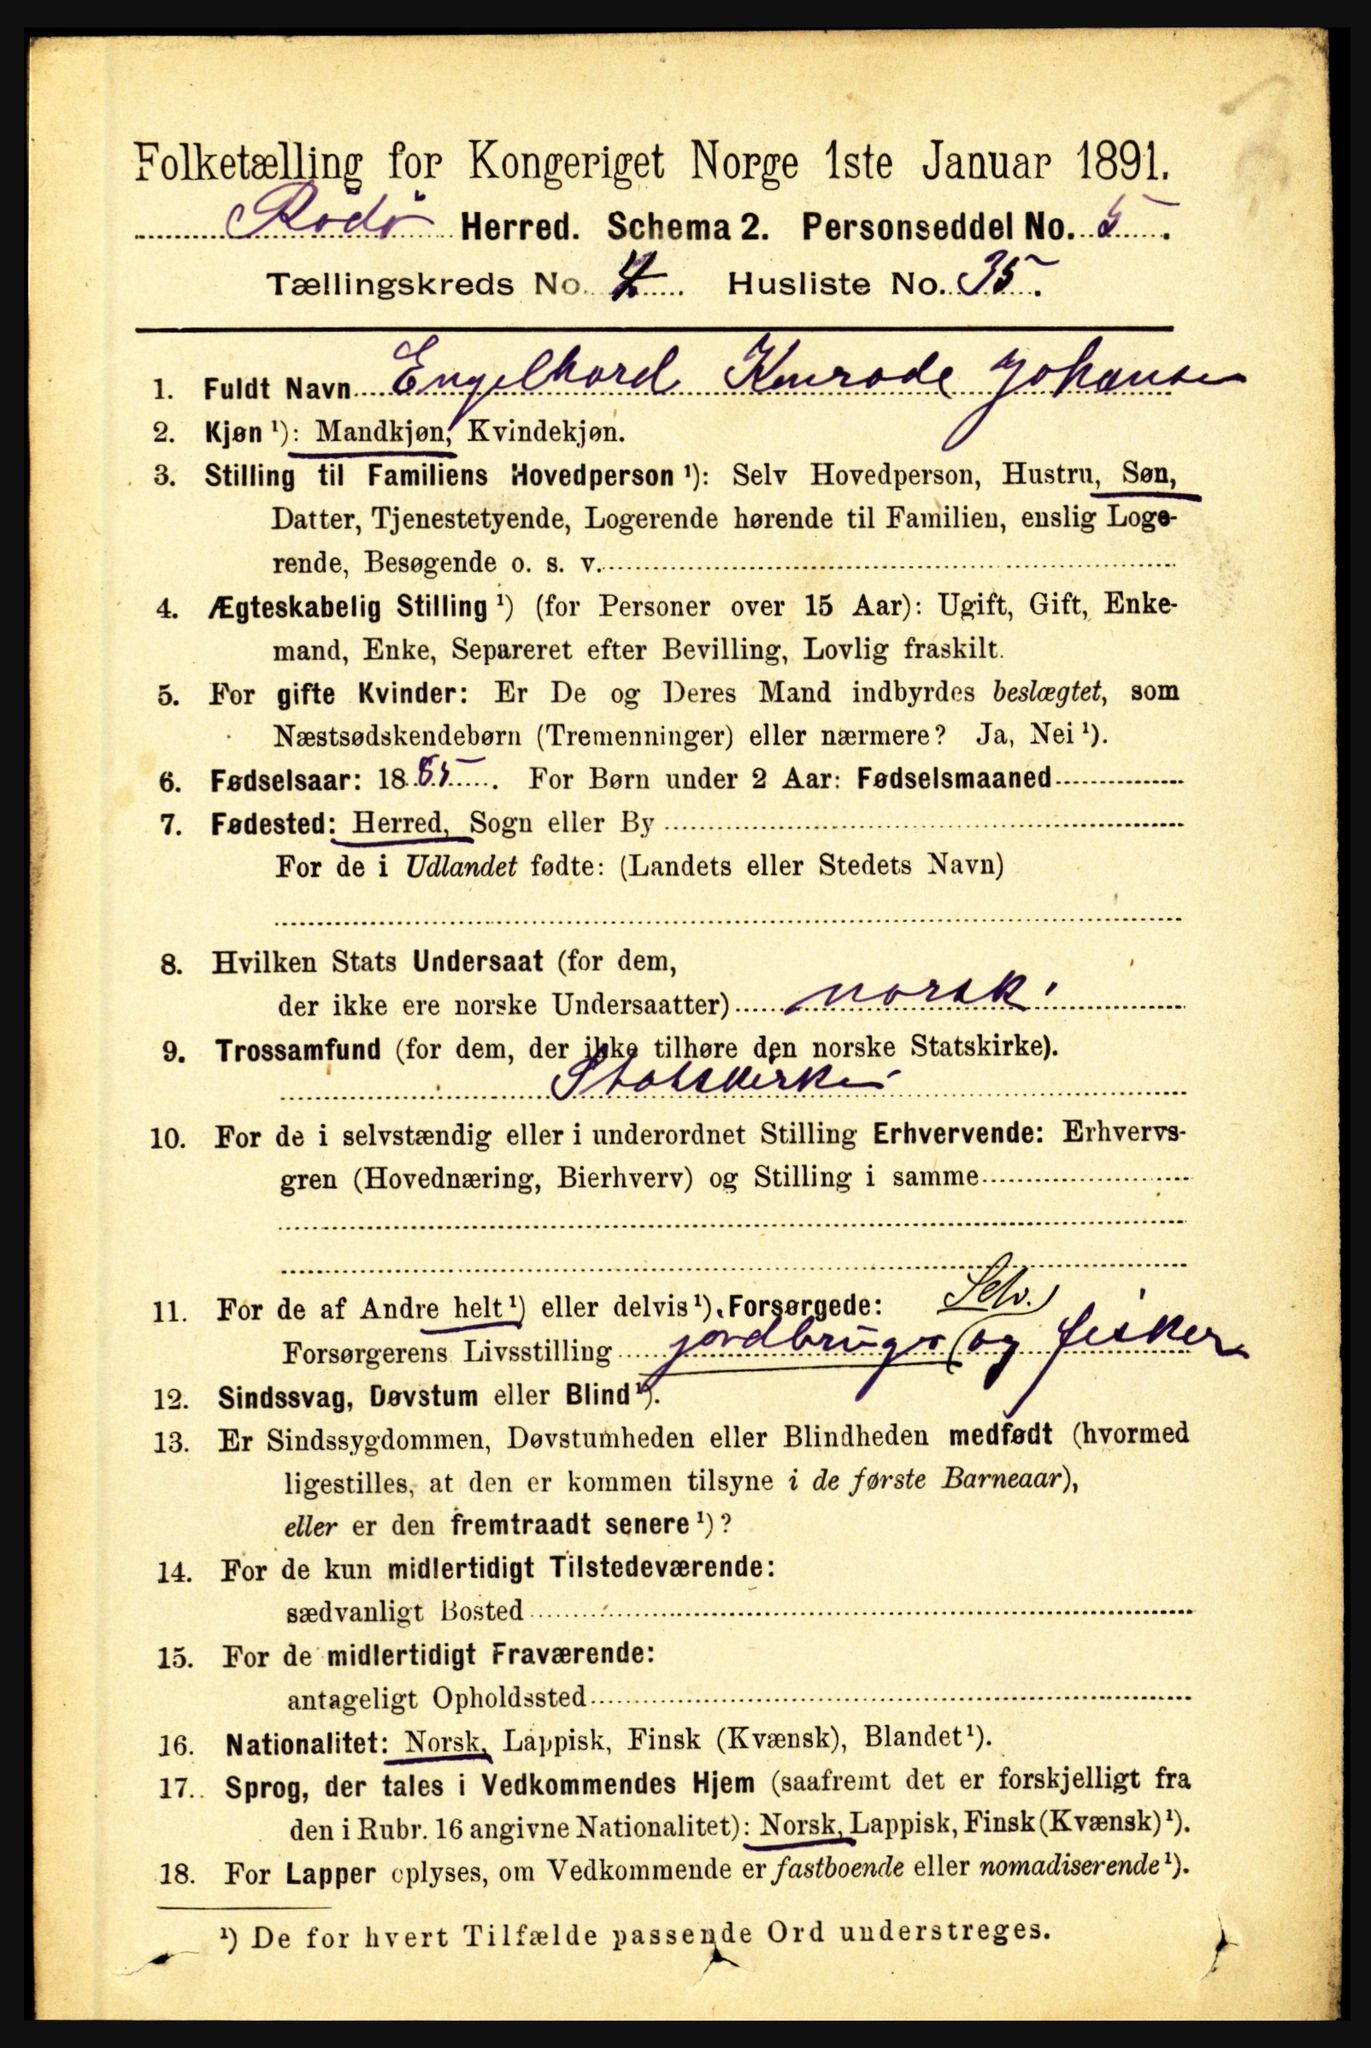 Folketælling for Kongeriget Norge 1ste Januar 1891.
Rødø Herred. Schema 2. Personseddel No. 5.
Tællingskreds No. 4. Husliste No. 35.
1. Fuldt Navn Engelhard Konrade Johanse
2. Kjøn ¹): Mandkjøn, Kvindekjøn.
3. Stilling til Familiens Hovedperson ¹): Selv Hovedperson, Hustru, Søn,
Datter, Tjenestetyende, Logerende hørende til Familien, enslig Loge-
rende, Besøgende o. s. v.
4. Ægteskabelig Stilling ¹) (for Personer over 15 Aar): Ugift, Gift, Enke-
mand, Enke, Separeret efter Bevilling, Lovlig fraskilt.
5. For gifte Kvinder: Er De og Deres Mand indbyrdes beslægtet, som
Næstsødskendebørn (Tremenninger) eller nærmere? Ja, Nei ¹).
6. Fødselsaar: 1885. For Børn under 2 Aar: Fødselsmaaned
7. Fødested: Herred, Sogn eller By
For de i Udlandet fødte: (Landets eller Stedets Navn)
8. Hvilken Stats Undersaat (for dem,
der ikke ere norske Undersaatter) norsk.
9. Trossamfund (for dem, der ikke tilhøre den norske Statskirke).
Statskirken
10. For de i selvstændig eller i underordnet Stilling Erhvervende: Erhvervs-
gren (Hovednæring, Bierhverv) og Stilling i samme
11. For de af Andre helt ¹) eller delvis ¹) Forsørgede: Selv.
Forsørgerens Livsstilling jordbruger og fisker
12. Sindssvag, Døvstum eller Blind ¹).
13. Er Sindssygdommen, Døvstumheden eller Blindheden medfødt (hvormed
ligestilles, at den er kommen tilsyne i de første Barneaar),
eller er den fremtraadt senere ¹)?
14. For de kun midlertidigt Tilstedeværende:
sædvanligt Bosted
15. For de midlertidigt Fraværende:
antageligt Opholdssted
16. Nationalitet: Norsk, Lappisk, Finsk (Kvænsk), Blandet ¹).
17. Sprog, der tales i Vedkommendes Hjem (saafremt det er forskjelligt fra
den i Rubr. 16 angivne Nationalitet): Norsk, Lappisk, Finsk (Kvænsk) ¹).
18. For Lapper oplyses, om Vedkommende er fastboende eller nomadiserende ¹).
¹) De for hvert Tilfælde passende Ord understreges.